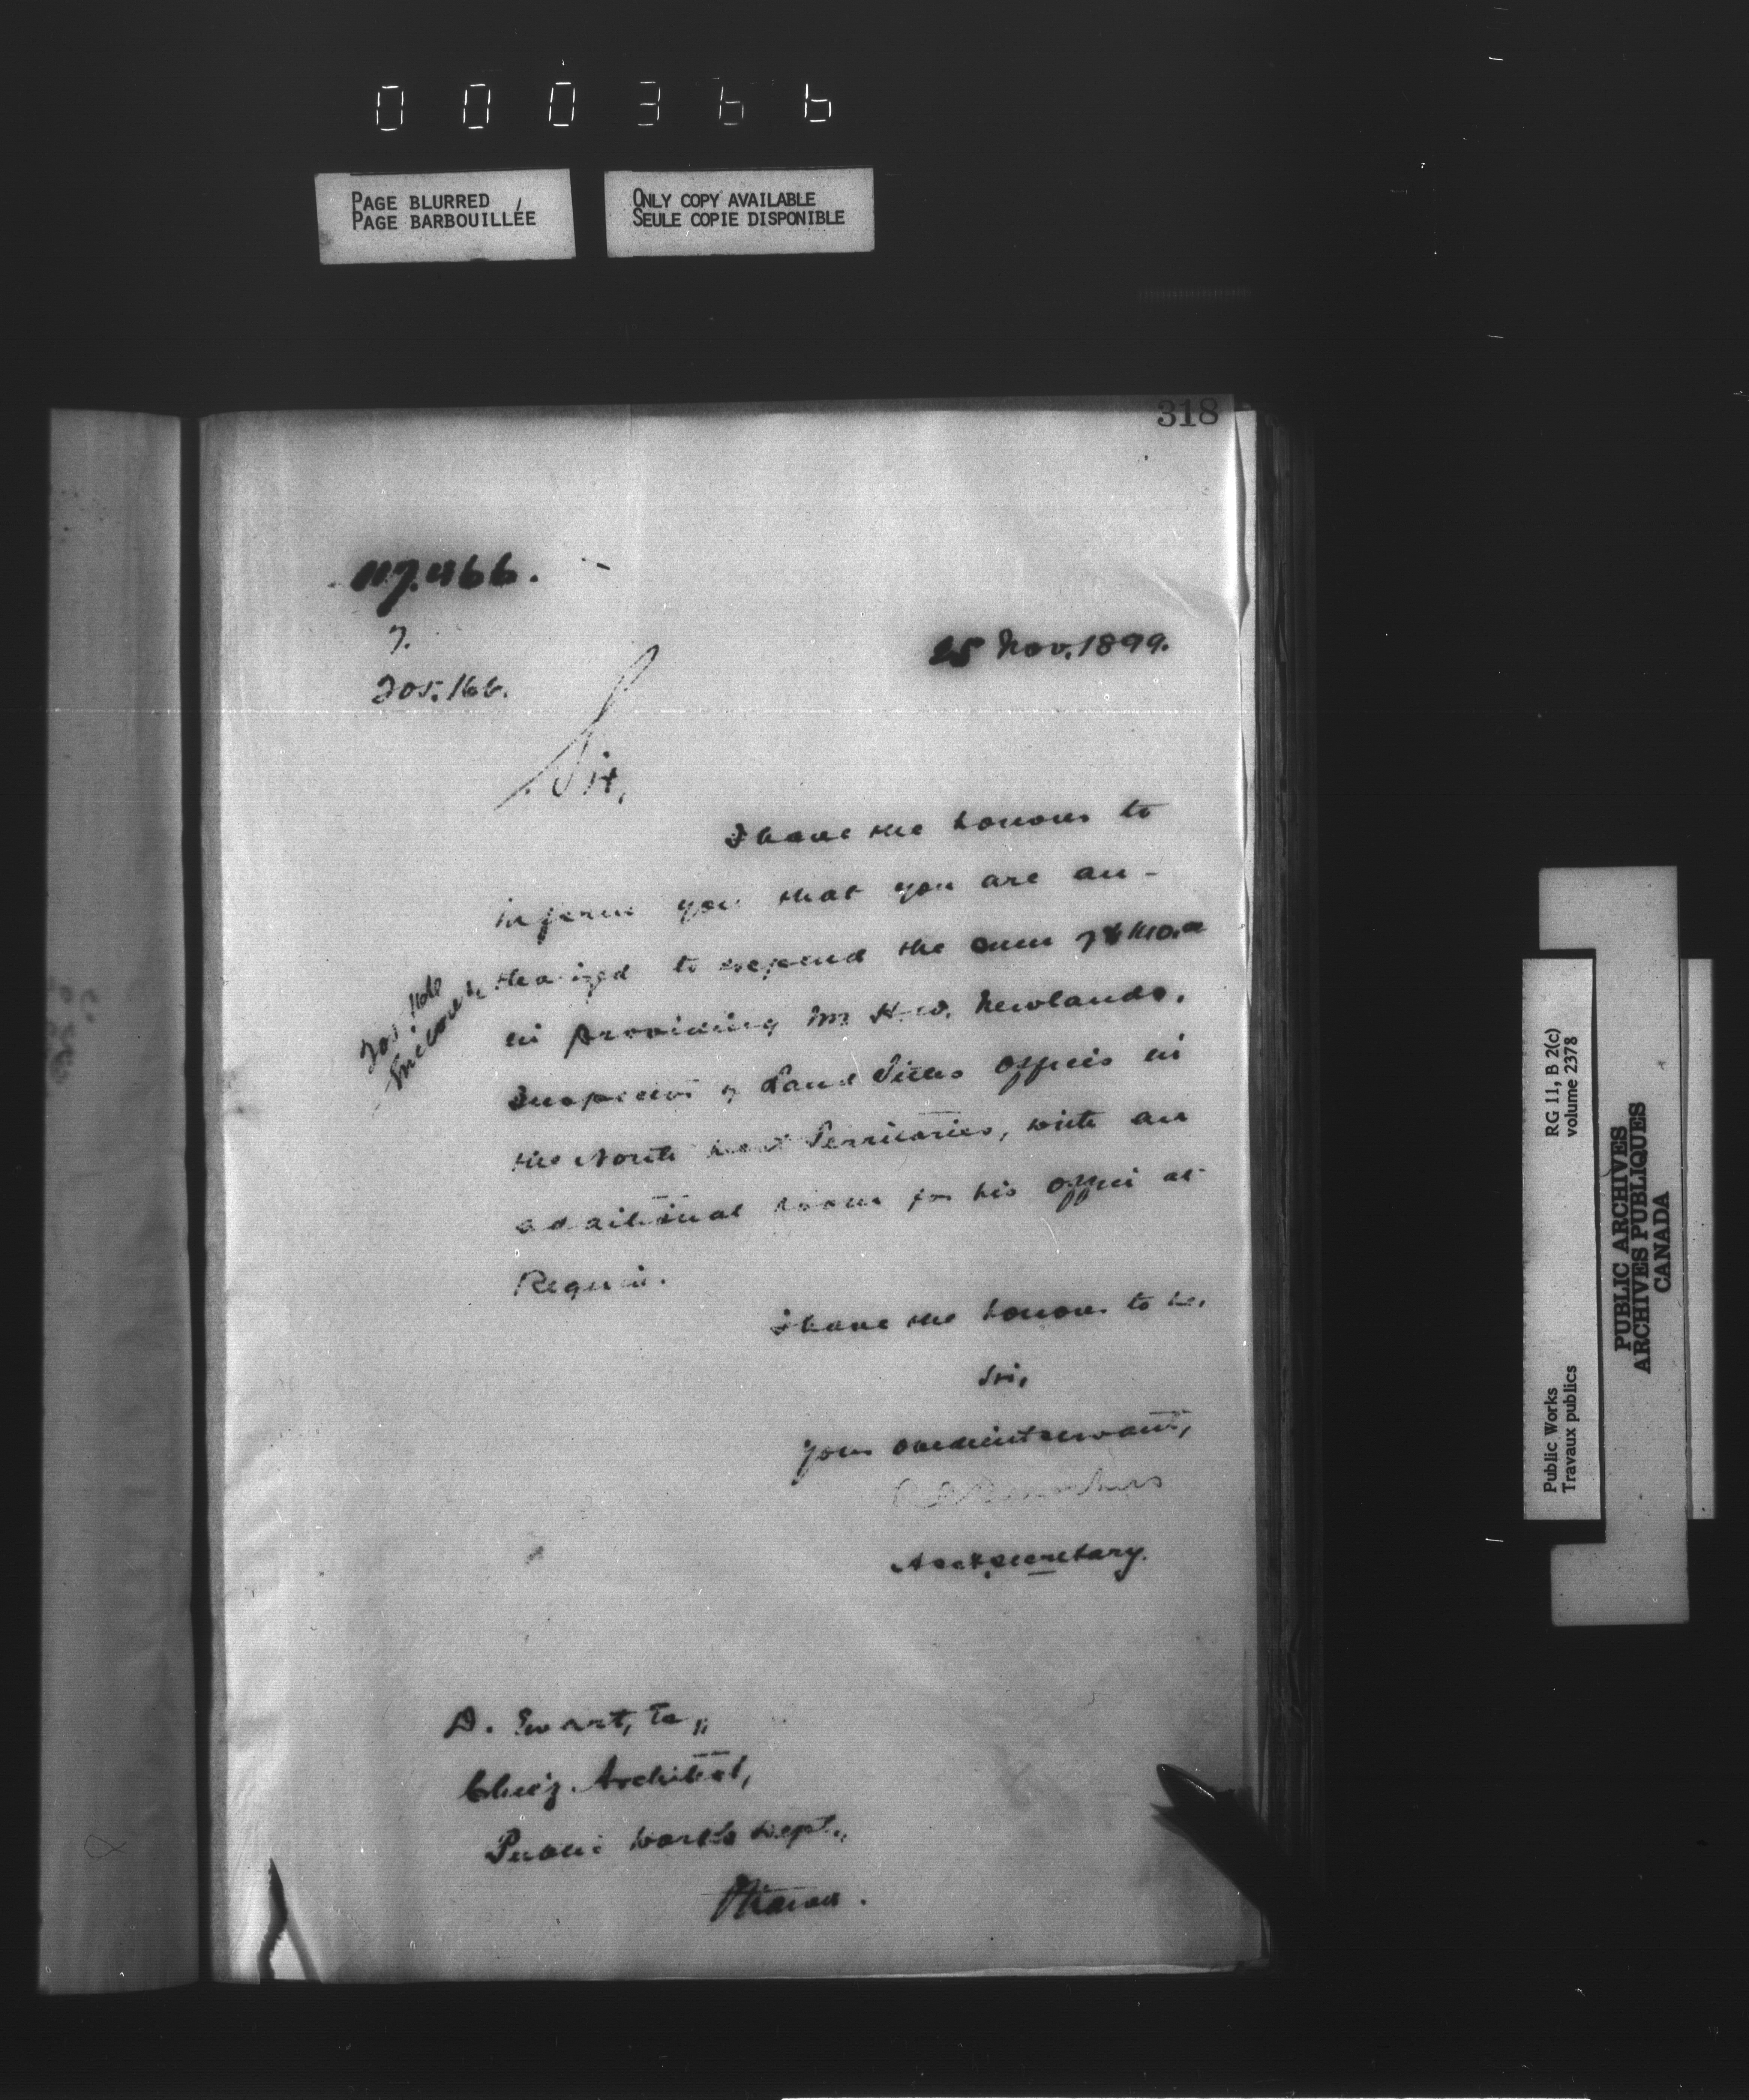 000366
PAGE BLURRED
PAGE BARBOUILLÉE
ONLY COPY AVAILABLE
SEULE COPIE DISPONIBLE
318
205.166.
25 Nov. 1899.
Sir,
I have the honour to
inform you that you are au-
thorized to expend the sum of
in providing Mr H.W. Newlands,
Inspector of Land Titles Offices in
the North West Territories, with an
additional room for his office at
Regina.
I have the honour to be,
Sir,
Your obedient servant,
Asst. Secretary.
205.166
D. Ewart,
Chief Architect,
Public Works Dept.,
Ottawa.
RG 11, B 2(c)
volume 2378
Public Works
Travaux publics
PUBLIC ARCHIVES
ARCHIVES PUBLIQUES
CANADA